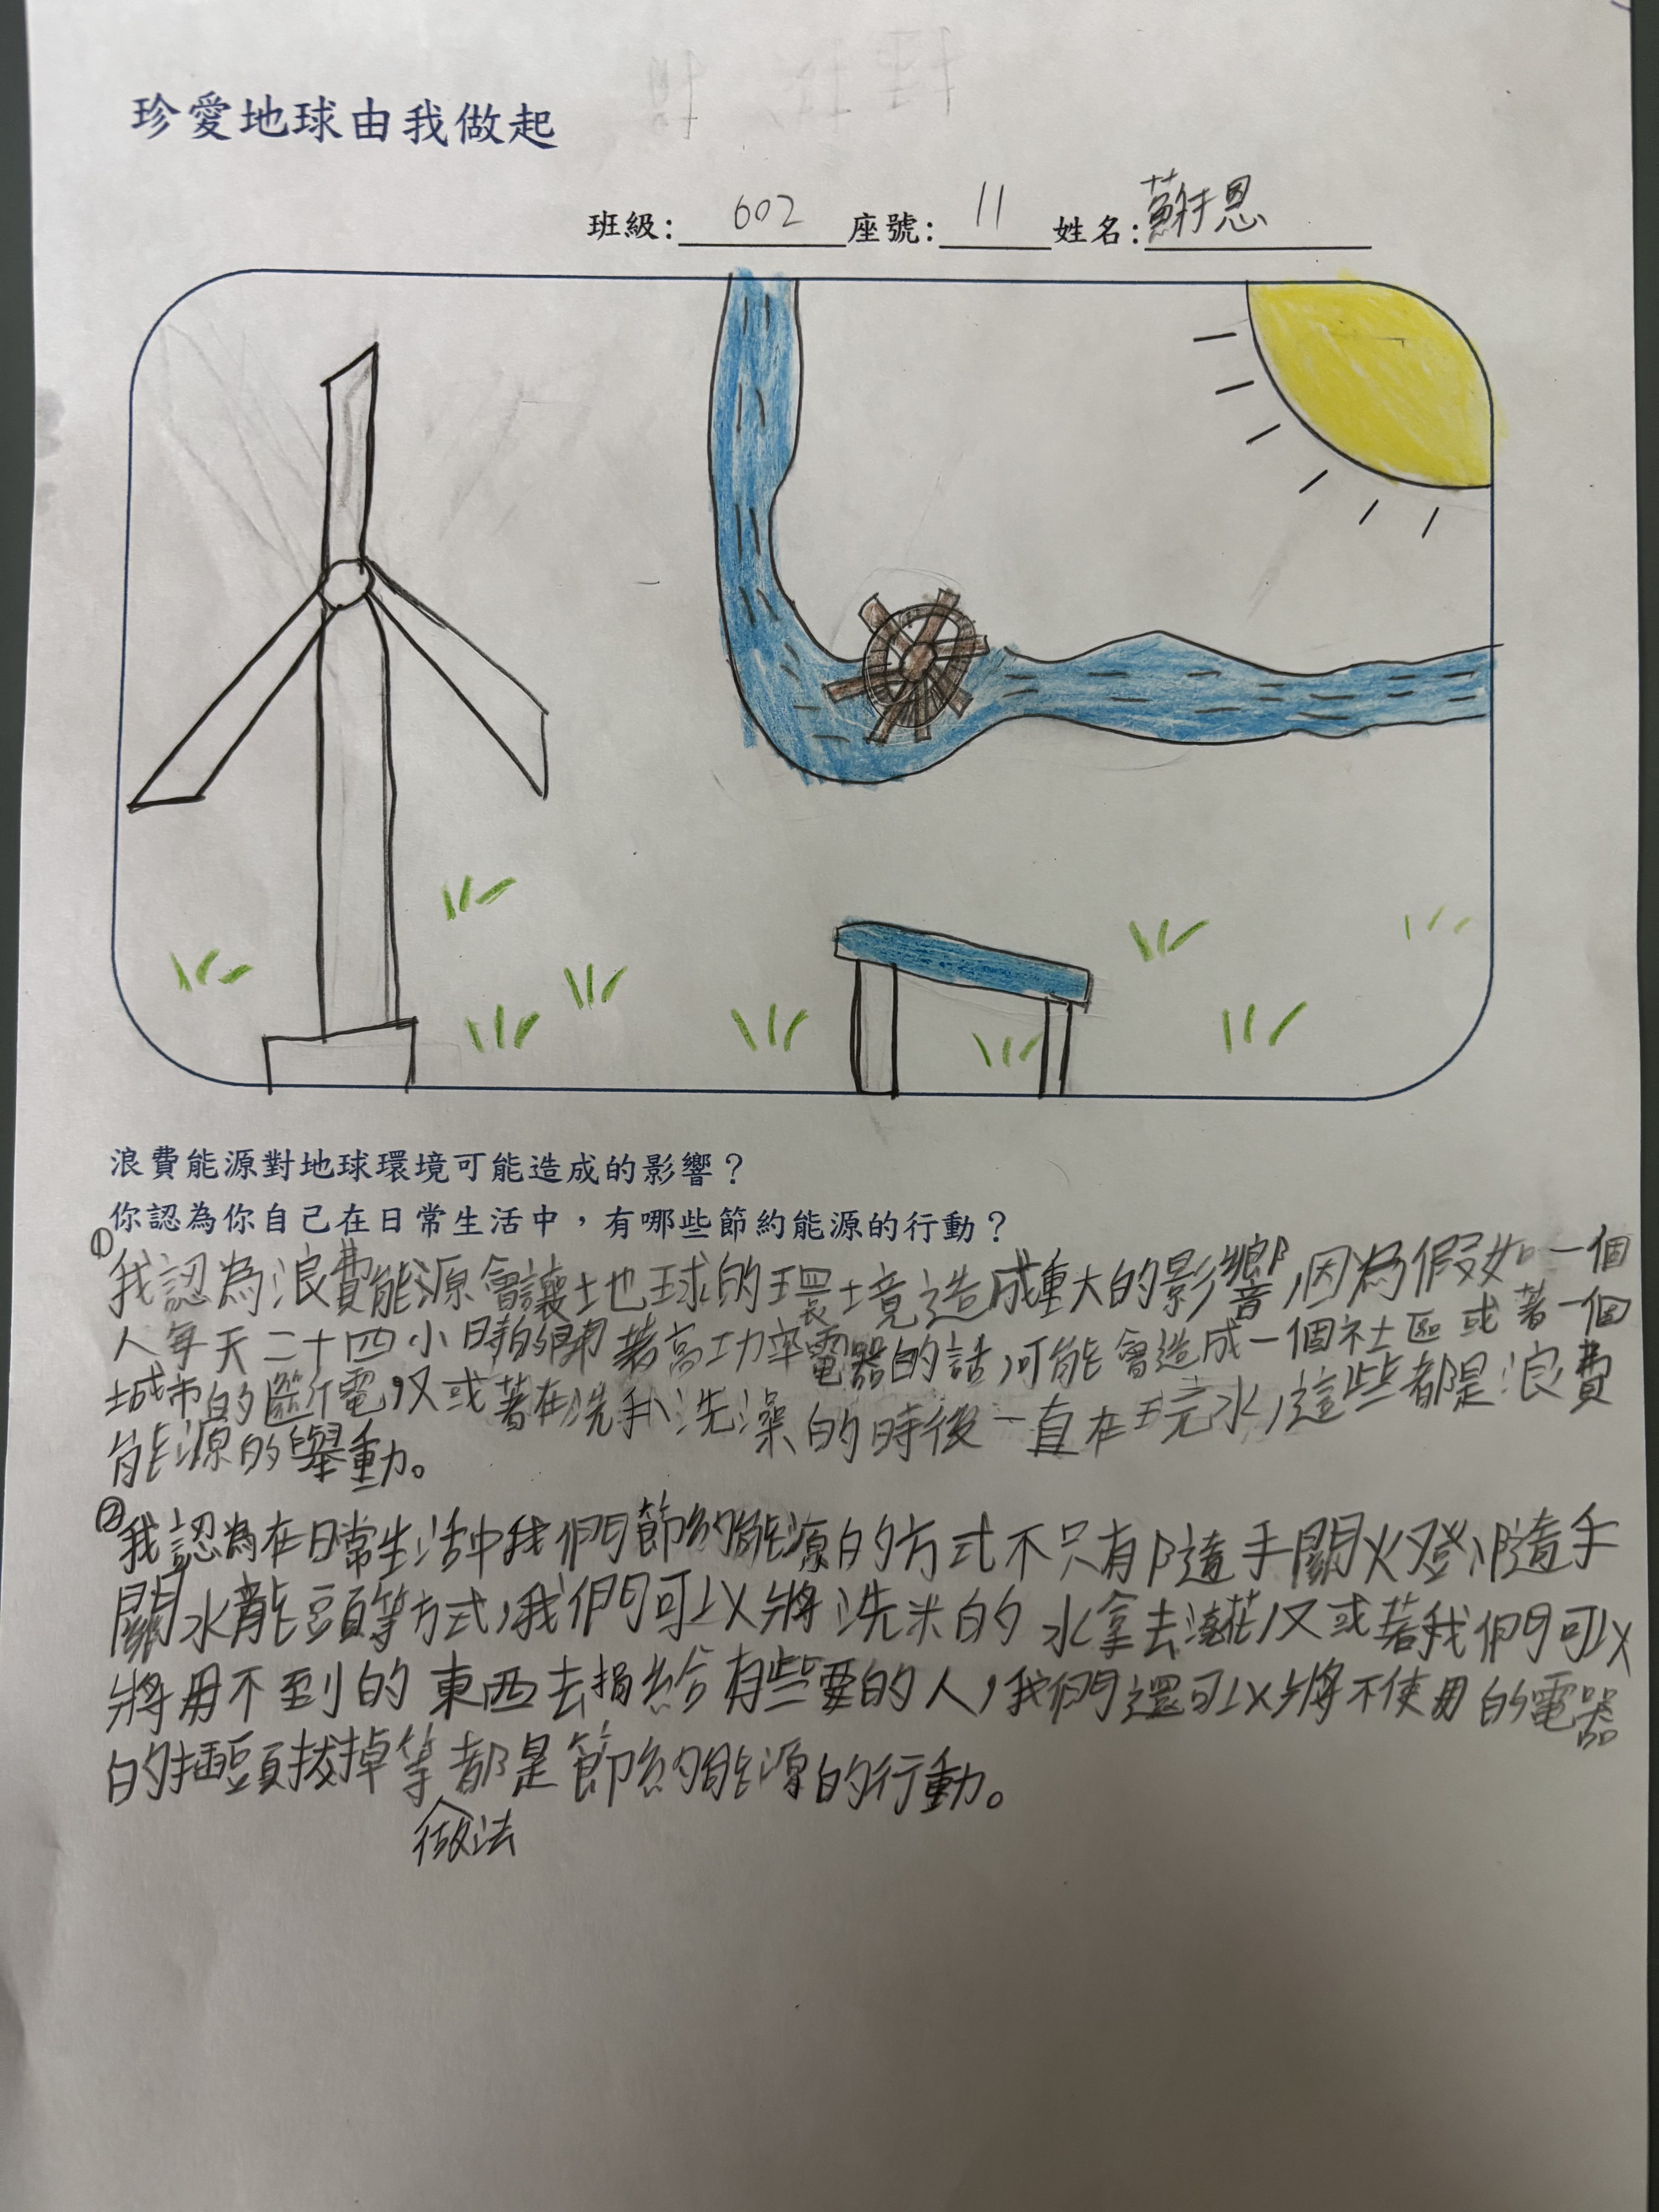 珍愛地球由我做起
班級: 602 座號: 11 姓名: 蘇恩
浪費能源對地球環境可能造成的影響？
你認為你自己在日常生活中，有哪些節約能源的行動？
①我認為浪費能源會讓地球的環境造成重大的影響，因為假如一個
人每天二十四小時的開著高功率電器的話，可能會造成一個社區或著一個
城市的斷電，又或著在洗手、洗澡的時後一直在玩水，這些都是浪費
能源的舉動。
②我認為在日常生活中我們節約能源的方式不只有隨手關火燈、隨手
關水龍頭等方式，我們可以將洗米的水拿去澆花，又或著我們可以
將用不到的東西去捐給有些要的人，我們還可以將不使用的電器
的插頭拔掉等做法都是節約能源的行動。